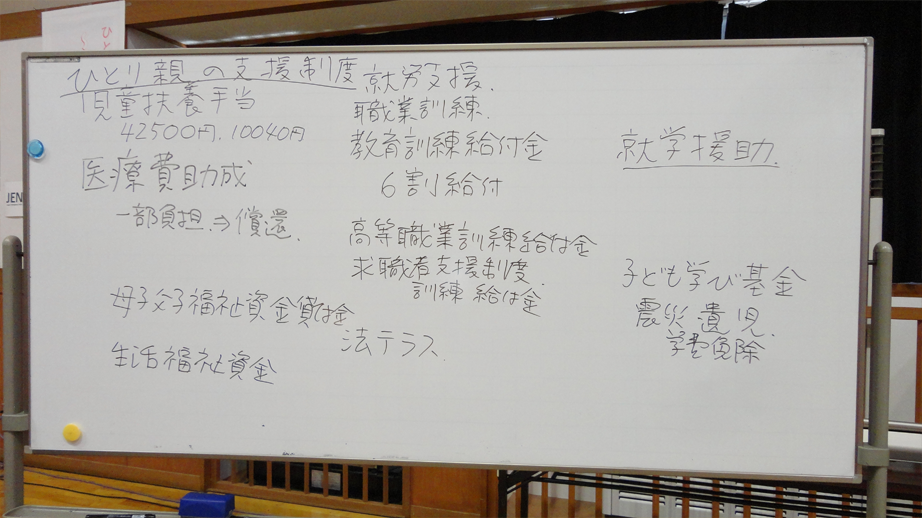 ひと
JEN
ひとり親の支援制度
児童扶養手当
42500円、10040円
医療費助成
一部負担、⇒償還、
母子父子福祉資金貸付金
生活福祉資金
就労支援、
職業訓練、
教育訓練給付金
6割給付
高等職業訓練給付金
求職者支援制度、
訓練給付金
法テラス、
就学援助、
子ども学び基金
震災遺児、
学費免除